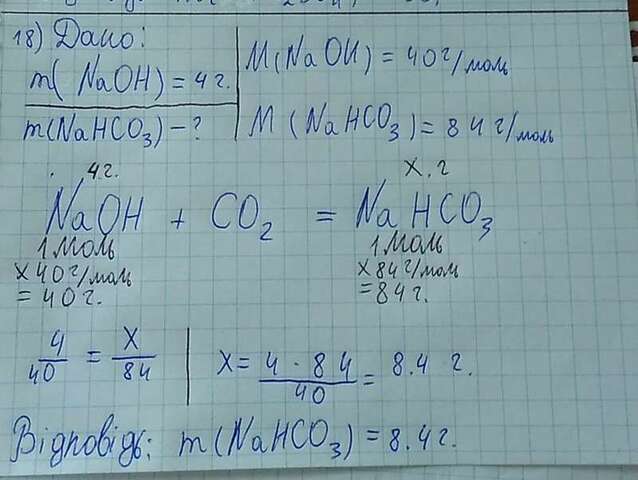 18) Дано:
m( NaOH) = 4 г.
m(NaHCO₃) – ?
M(NaOH) = 40 г/моль
M (NaHCO₃) = 84 г/моль
4 г. x. г
NaOH + CO₂ = NaHCO₃
1 моль 1 моль
x 40 г/моль x 84 г/моль
= 40 г. = 84 г.
4/40 = x/84
x = 4 · 84/40 = 8.4 г.
Відповідь: m(NaHCO₃) = 8.4 г.